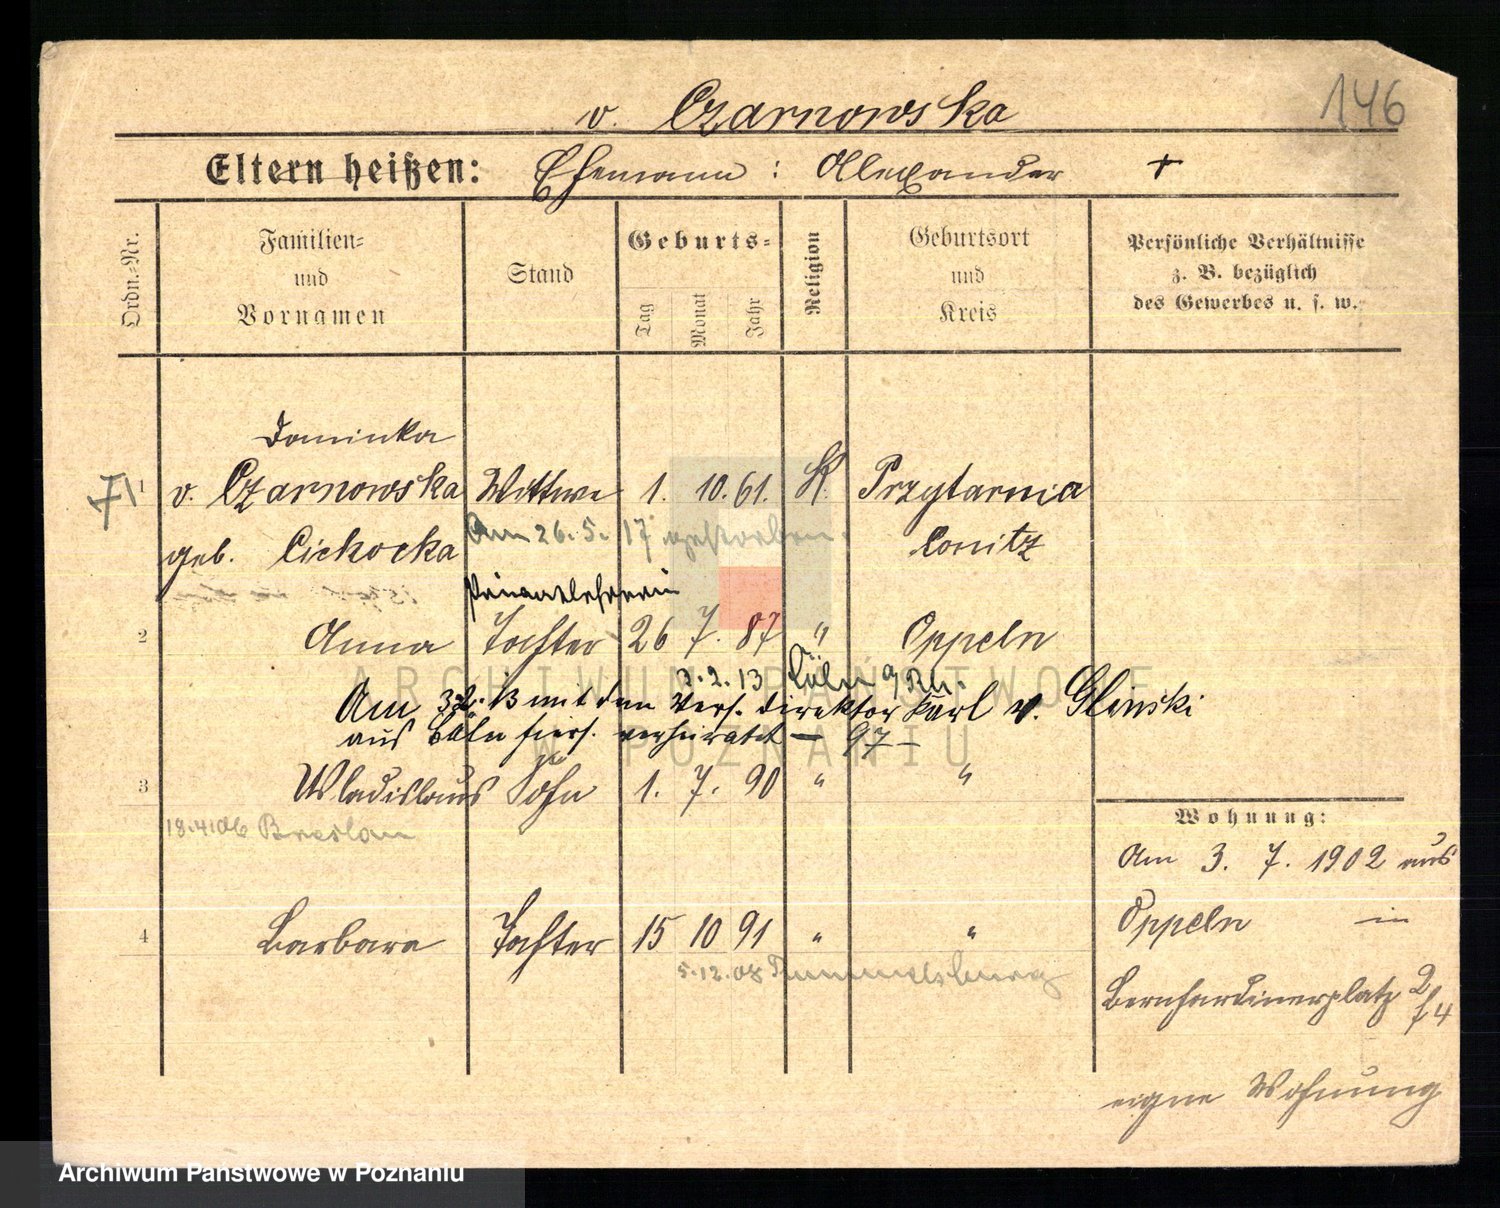 146
v. Czarnowska
Eltern heißen: Ehemann : Alexander +
Ordn.-Nr.
Familien-
und
Vornamen
Stand
Geburts-
Tag
Monat
Jahr
Religion
Geburtsort
und
Kreis
Persönliche Verhältnisse
z. B. bezüglich
des Gewerbes u. s. w.
Dominika
1 v. Czarnowska Wittwe 1. 10. 61. K. Przytarnia
geb. Cichocka Am 26. 5. 17 gestorben. Conitz
Privatlehrerin
2 Anna Tochter 26 7. 87 " Oppeln
3. 2. 13 Cöln a/Rh.
Am 3.2.13 mit dem Vers. Direktor Karl v. Glinski
aus Cöln hiers. verheiratet — 97 —
3 Wladislaus Sohn 1. 7. 90 " "
18.4.06 Breslau
4 Barbara Tochter 15 10 91 " "
5.12.08 Rummelsburg
Wohnung:
Am 3. 7. 1902 aus
Oppeln in
Bernhardinerplatz 2/4
eigne Wohnung
ARCHIWUM PAŃSTWOWE
W POZNANIU
Archiwum Państwowe w Poznaniu